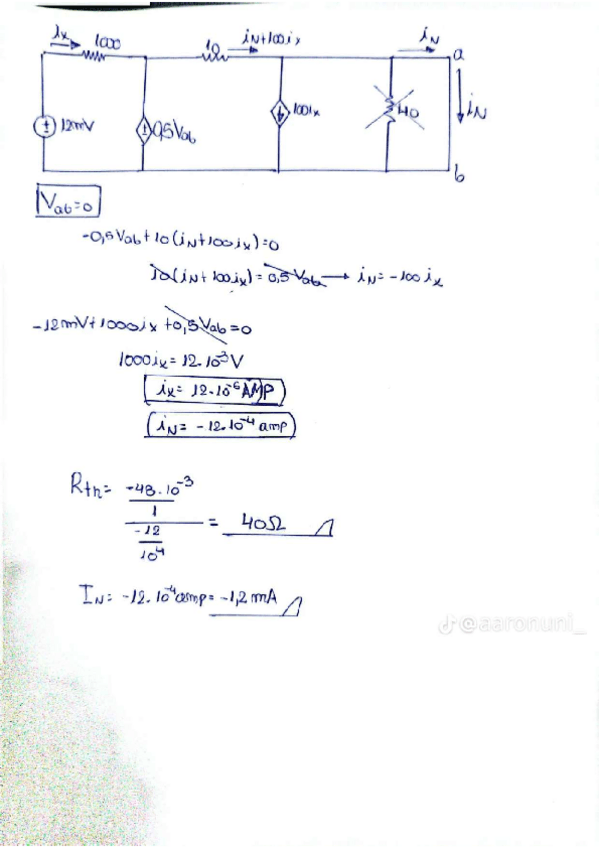 ix 1000 10 iN+100ix iN a
12mV 0,5Vab 100ix 40 iN
b
Vab=0
-0,5Vab+10(iN+100ix)=0
10(iN+100ix)=0,5Vab → iN=-100ix
-12mV+1000ix+0,5Vab=0
1000ix=12.10⁻³V
ix=12.10⁻⁶AMP
iN=-12.10⁻⁴amp
Rth= -48.10⁻³
1
-12
10⁴
= 40Ω
IN=-12.10⁻⁴amp=-1,2mA
@aaronuni_